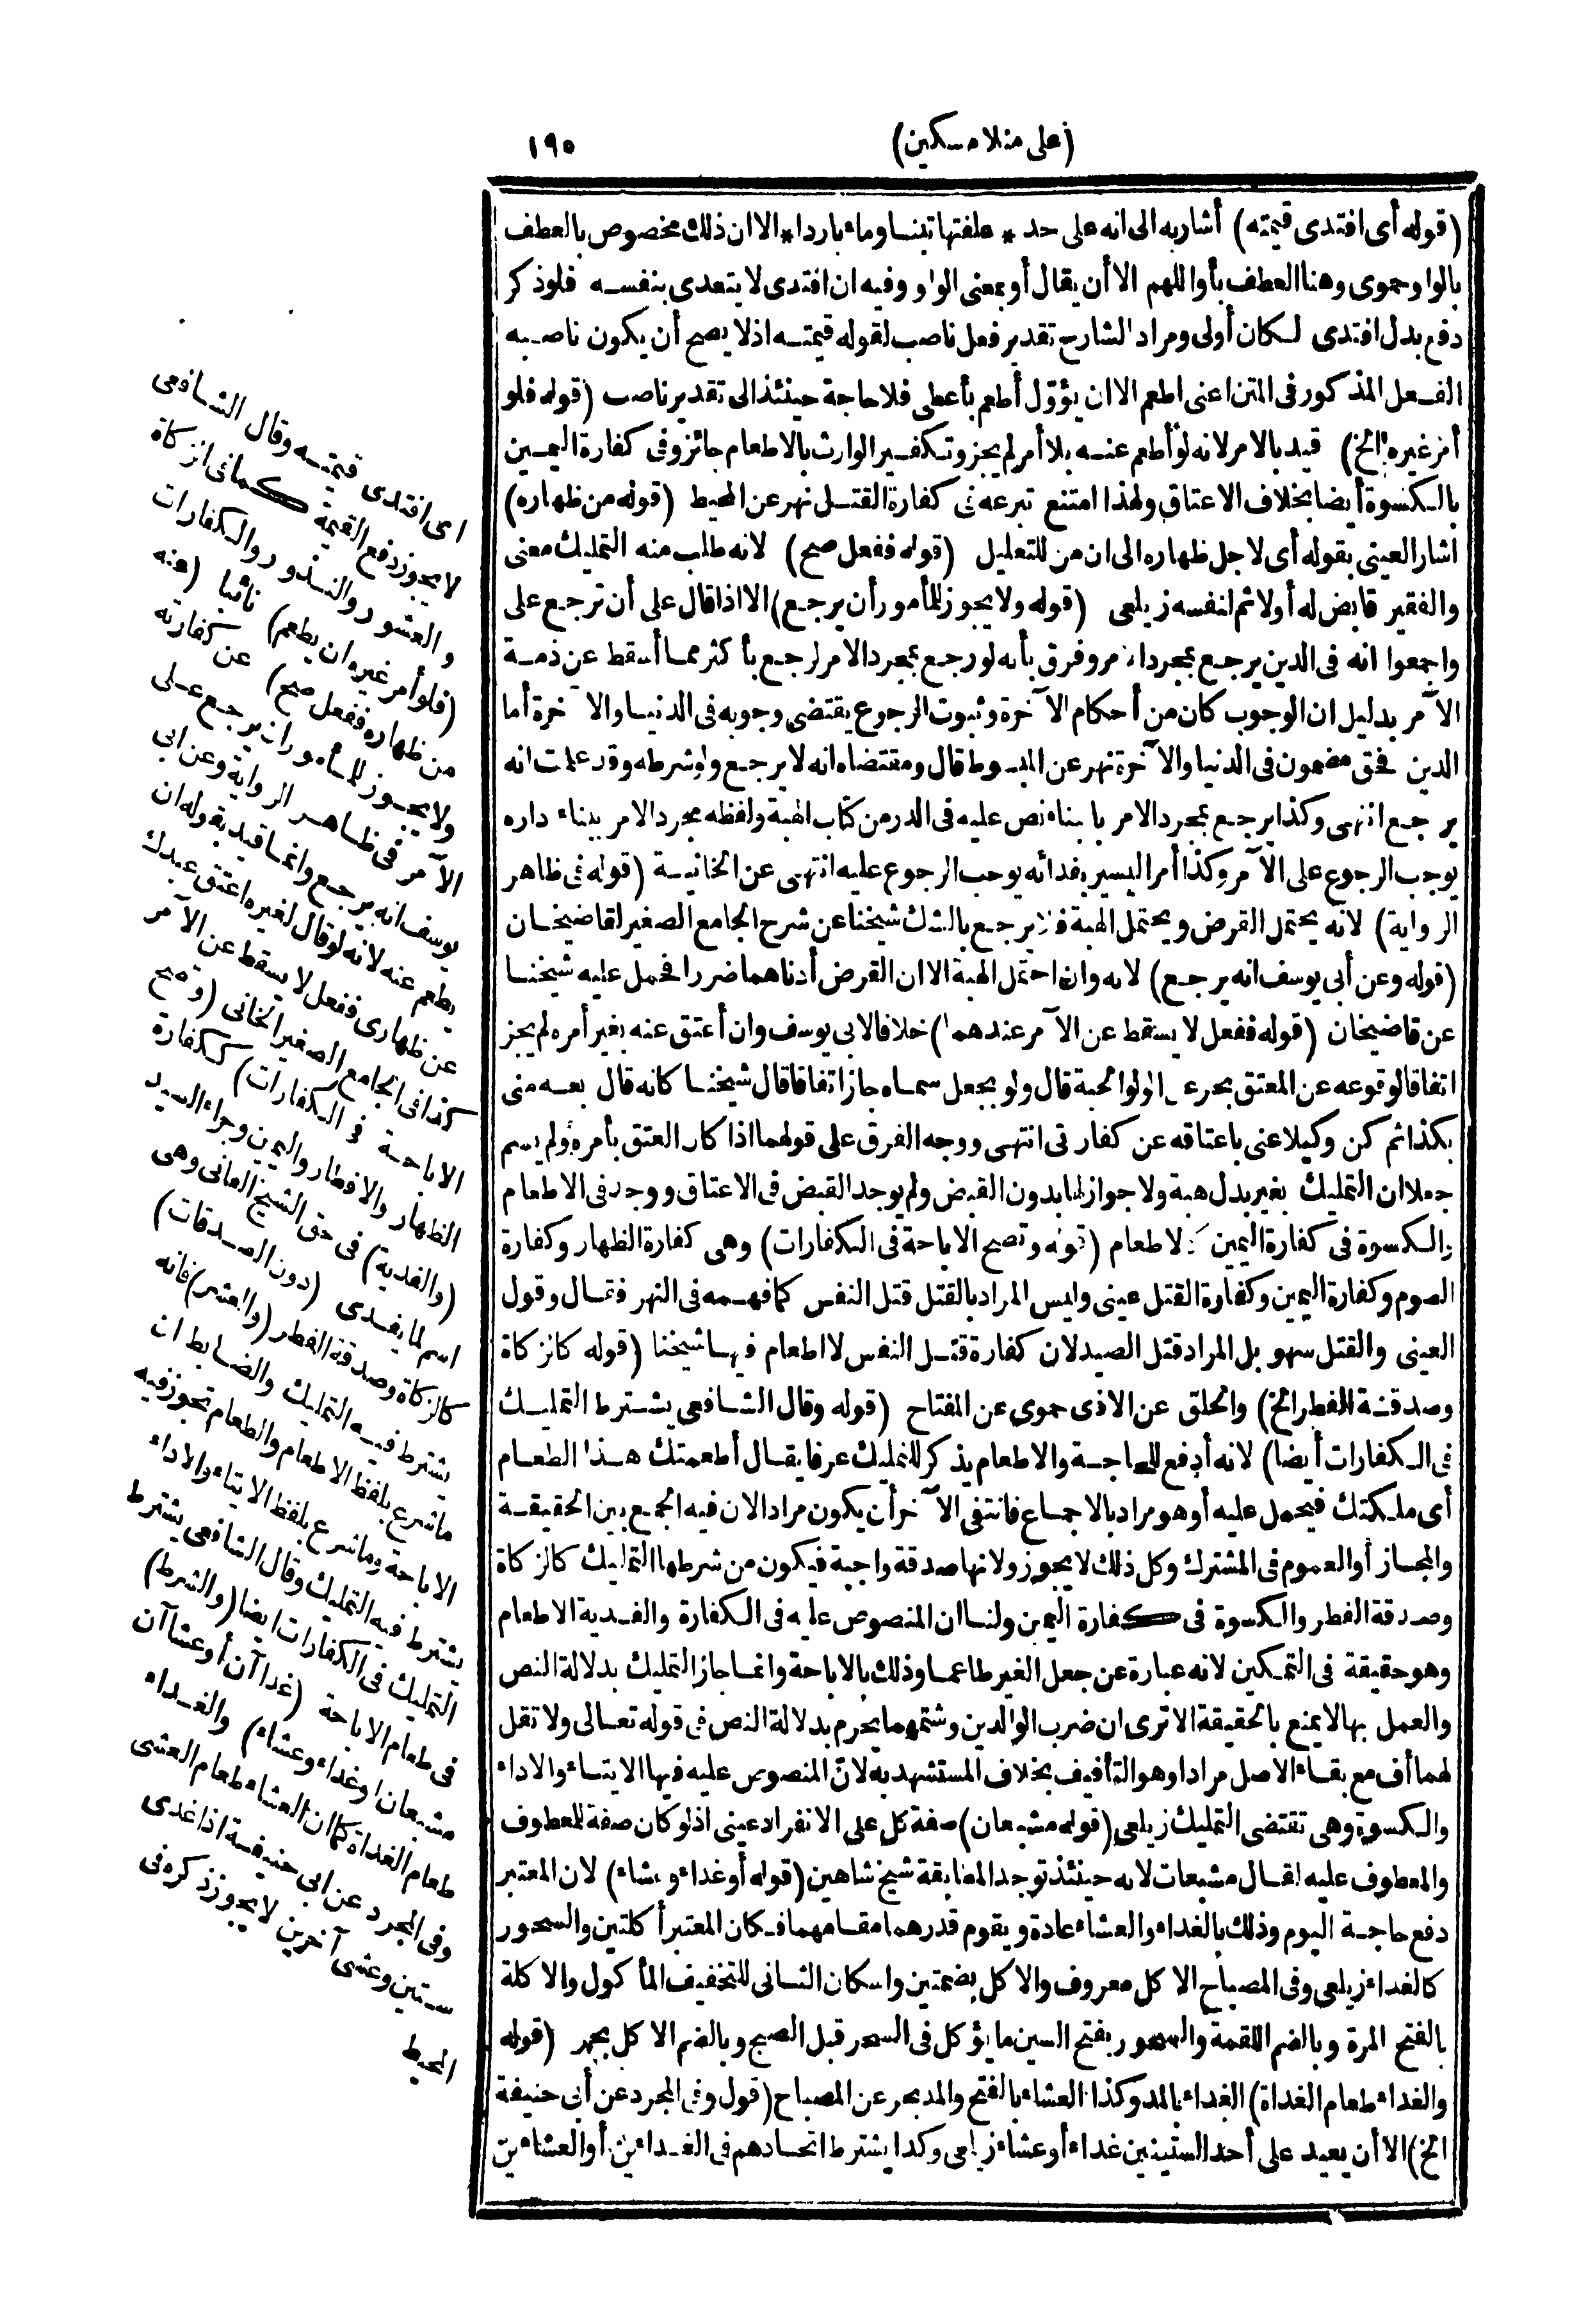 (على منلا مسكين) ١٩٥
(قوله أى افتدى قيمته) أشار به الى انه على حد * علفتها تبنا وماء باردا * الا ان ذلك مخصوص بالعطف
بالواو حموى وهنا العطف بأو اللهم الا أن يقال أو بمعنى الواو وفيه ان افتدى لا يتعدى بنفسه فلوذكر
دفع بدل افتدى لكان أولى ومراد الشارح تقدير فعل ناصب لقوله قيمته اذ لا يصح أن يكون ناصبه
الفعل المذكور فى المتن اعنى اطعم الا ان يؤول أطعم بأعطى فلا حاجة حينئذ الى تقدير ناصب (قوله فلو
أمر غيره الخ) قيد بالامر لانه لو أطعم عنه بلا أمر لم يجز وتكفير الوارث بالاطعام جائز وفى كفارة اليمين
بالكسوة أيضا بخلاف الاعتاق ولهذا امتنع تبرعه فى كفارة القتل نهر عن المحيط (قوله من ظهاره)
اشار العينى بقوله أى لاجل ظهاره الى ان من للتعليل (قوله ففعل صح) لانه طلب منه التمليك معنى
والفقير قابض له أولا ثم لنفسه زيلعى (قوله ولا يجوز للمأمور أن يرجع) الا اذا قال على أن ترجع على
واجمعوا انه فى الدين يرجع بمجرد الامر وفرق بأنه لو رجع بمجرد الامر لرجع بأكثر مما أسقط عن ذمة
الآمر بدليل ان الوجوب كان من أحكام الآخرة وثبوت الرجوع يقتضى وجوبه فى الدنيا والآخرة أما
الدين فحق مضمون فى الدنيا والآخرة نهر عن المبسوط قال ومقتضاه انه لا يرجع ولو شرطه وقد علمت انه
يرجع انتهى وكذا يرجع بمجرد الامر بالبناء نص عليه فى الدر من كتاب الهبة ولفظه مجرد الامر ببناء داره
يوجب الرجوع على الآمر وكذا أمر اليسير بفدائه يوجب الرجوع عليه انتهى عن الخانية (قوله فى ظاهر
الرواية) لانه يحتمل القرض ويحتمل الهبة فلا يرجع بالشك شيخنا عن شرح الجامع الصغير لقاضيخان
(قوله وعن أبى يوسف انه يرجع) لانه وان احتمل الهبة الا ان القرض أدناهما ضررا فحمل عليه شيخنا
عن قاضيخان (قوله ففعل لا يسقط عن الآمر عندهما) خلافا لابى يوسف وان أعتق عنه بغير أمره لم يجز
اتفاقا لوقوعه عن المعتق بحر عن الولوالجية قال ولو بجعل سماه جاز اتفاقا قال شيخنا كانه قال بعه منى
بكذا ثم كن وكيلا عنى باعتاقه عن كفارتى انتهى ووجه الفرق على قولهما اذا كان العتق بأمره ولم يسم
جعلا ان التمليك بغير بدل هبة ولا جواز لها بدون القبض ولم يوجد القبض فى الاعتاق ووجد فى الاطعام
والكسوة فى كفارة اليمين كالاطعام (قوله وتصح الاباحة فى الكفارات) وهى كفارة الظهار وكفارة
الصوم وكفارة اليمين وكفارة القتل عينى وليس المراد بالقتل قتل النفس كما فهمه فى النهر فقال وقول
العينى والقتل سهو بل المراد قتل الصيد لان كفارة قتل النفس لا اطعام فيها شيخنا (قوله كالزكاة
وصدقة الفطر الخ) والحلق عن الاذى حموى عن المفتاح (قوله وقال الشافعى يشترط التمليك
فى الكفارات أيضا) لانه أدفع للحاجة والاطعام يذكر للتمليك عرفا يقال أطعمتك هذا الطعام
أى ملكتك فيحمل عليه أو هو مراد بالاجماع فانتفى الآخر أن يكون مرادا لان فيه الجمع بين الحقيقة
والمجاز أو العموم فى المشترك وكل ذلك لا يجوز ولانها صدقة واجبة فيكون من شرطها التمليك كالزكاة
وصدقة الفطر والكسوة فى كفارة اليمين ولنا ان المنصوص عليه فى الكفارة والفدية الاطعام
وهو حقيقة فى التمكين لانه عبارة عن جعل الغير طاعما وذلك بالاباحة وانما جاز التمليك بدلالة النص
والعمل بها لا يمنع بالحقيقة الا ترى ان ضرب الوالدين وشتمهما يحرم بدلالة النص فى قوله تعالى ولا تقل
لهما أف مع بقاء الاصل مرادا وهو التأفيف بخلاف المستشهد به لان المنصوص عليه فيها الايتاء والاداء
والكسوة وهى تقتضى التمليك زيلعى (قوله مشبعان) صفة كل على الانفراد عينى اذ لو كان صفة للمعطوف
والمعطوف عليه لقال مشبعات لانه حينئذ توجد المطابقة شيخ شاهين (قوله أو غداء وعشاء) لان المعتبر
دفع حاجة اليوم وذلك بالغداء والعشاء عادة ويقوم قدرهما مقامهما فكان المعتبر أكلتين والسحور
كالغداء زيلعى وفى المصباح الاكل معروف والاكل بضمتين واسكان الثانى للتخفيف المأكول والاكلة
بالفتح المرة وبالضم اللقمة والسحور بفتح السين ما يؤكل فى السحر قبل الصبح وبالضم الاكل بحر (قوله
والغداء طعام الغداة) الغداء بالمد وكذا العشاء بالفتح والمد بحر عن المصباح (قوله وفى المجرد عن أبى حنيفة
الخ) الا أن يعيد على أحد الستينين غداء أو عشاء زيلعى وكذا يشترط اتحادهم فى الغداءين أو العشاءين
اى افتدى قيمته وقال الشافعى
لا يجوز دفع القيمة كما فى الزكاة
والعشور والنذور والكفارات
(فلو أمر غيره ان يطعم) نائبا (عنه
من ظهاره ففعل صح) عن كفارته
ولا يجوز للمأمور ان يرجع على
الآمر فى ظاهر الرواية وعن ابى
يوسف انه يرجع وانما قيد بقوله ان
يطعم عنه لانه لو قال لغيره اعتق عبدك
عن ظهارى ففعل لا يسقط عن الآمر
كذا فى الجامع الصغير الخانى (وتصح
الاباحة فى الكفارات) ككفارة
الظهار والافطار واليمين وجزاء الصيد
(والفدية) فى حق الشيخ الفانى وهى
اسم لما يفدى (دون الصدقات)
كالزكاة وصدقة الفطر (والعشر) فانه
يشترط فيه التمليك والضابط ان
ما شرع بلفظ الاطعام والطعام تجوز فيه
الاباحة وما شرع بلفظ الايتاء والاداء
يشترط فيه التمليك وقال الشافعى يشترط
التمليك فى الكفارات ايضا (والشرط)
فى طعام الاباحة (غداآن أو عشاآن
مشبعان او غداء وعشاء) والغداء
طعام الغداة كما ان العشاء طعام العشى
وفى المجرد عن ابى حنيفة اذا غدى
ستين وعشى آخرين لا يجوز ذكره فى
المحيط